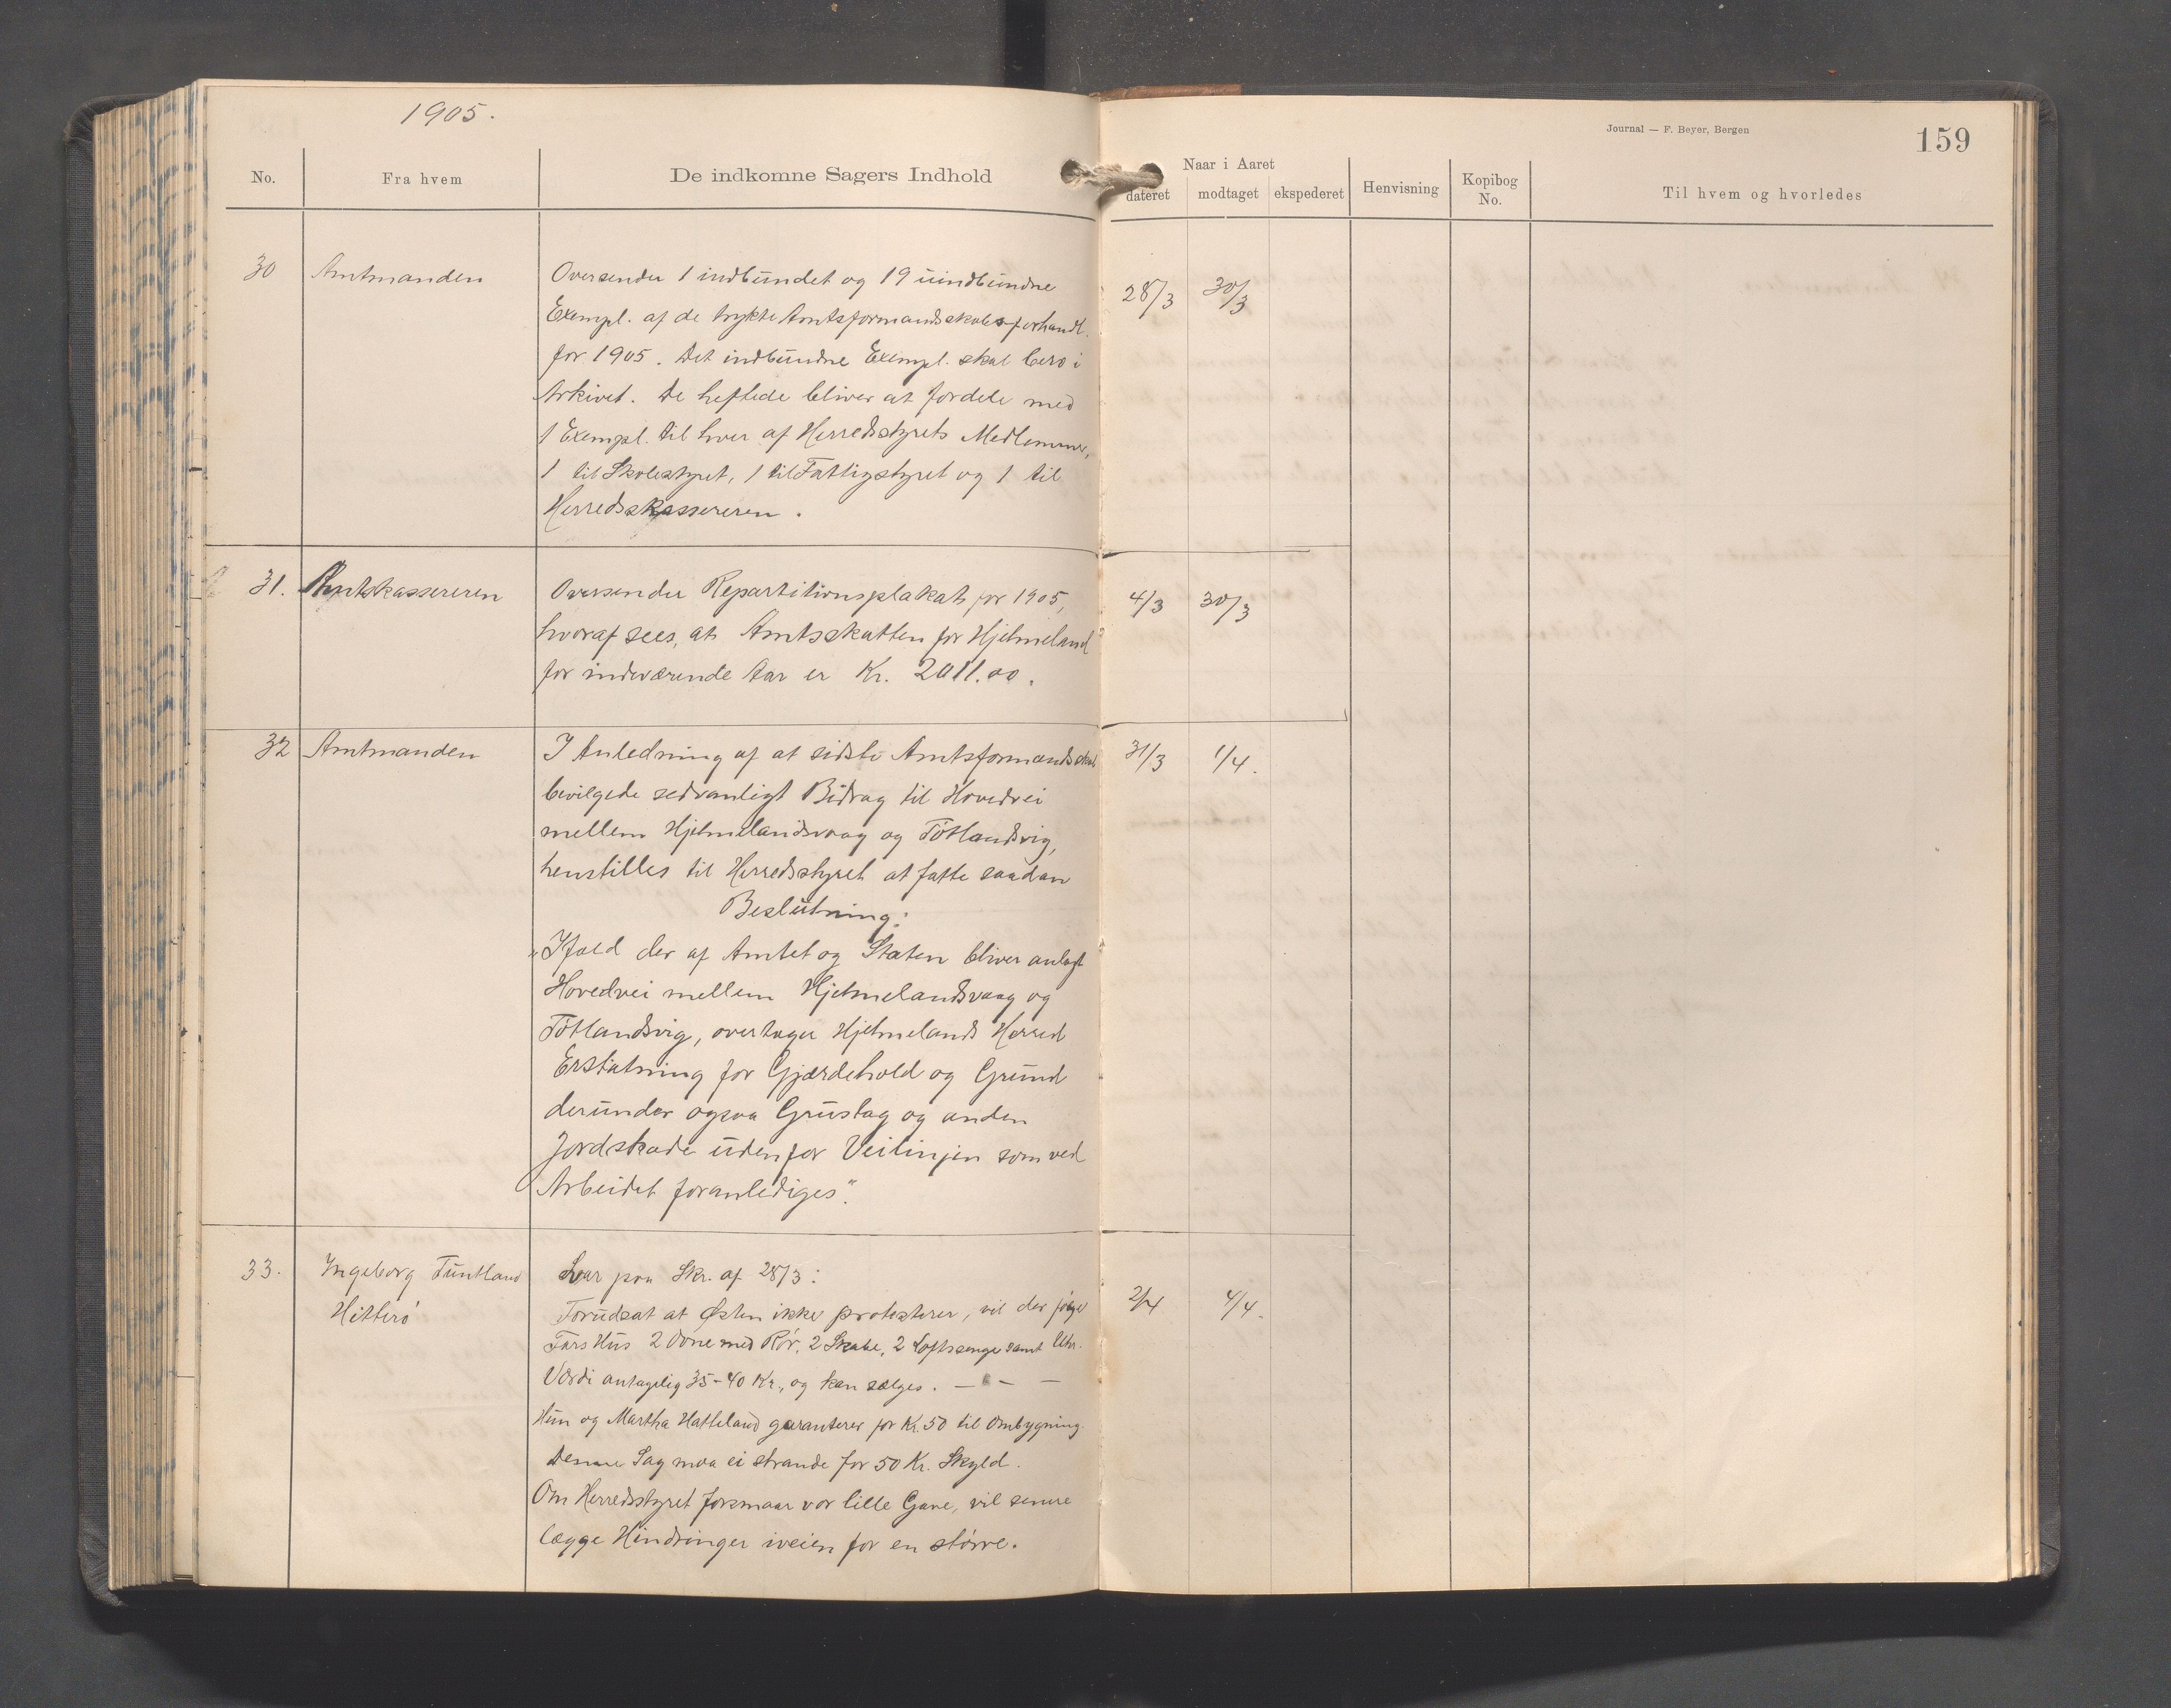 1905.
Journal — F. Beyer, Bergen
159
No.
Fra hvem
De indkomne Sagers Indhold
Naar i Aaret
dateret
modtaget
ekspederet
Henvisning
Kopibog No.
Til hvem og hvorledes
30 Amtmanden Oversender 1 indbundet og 19 uindbundne 28/3 30/3
Exempl. af de trykte Amtsformandskabsforhandl.
for 1905. Det indbundne Exempl. skal bero i
Arkivet. De heftede bliver at fordele med
1 Exempl. til hver af Herredsstyrets Medlemmer,
1 til Skolestyret, 1 til Fattigstyret og 1 til
Herredskassereren.
31. Amtskassereren Oversender Repartitionsplakat for 1905, 4/3 30/3
hvoraf sees, at Amtsskatten for Hjelmeland
for indeværende Aar er Kr. 2011.00.
32 Amtmanden I Anledning af at sidste Amtsformandskab 31/3 1/4.
bevilgede sedvanligt Bidrag til Hovedvei
mellem Hjelmelandsvaag og Tøtlandsvig,
henstilles til Herredsstyret at fatte saadan
Beslutning:
"Ifald der af Amtet og Staten bliver anlagt
Hovedvei mellem Hjelmelandsvaag og
Tøtlandsvig, overtager Hjelmelands Herred
Erstatning for Gjærdehold og Grund
derunder ogsaa Grustag og anden
Jordskade udenfor Veilinjen som ved
Arbeidet foranlediges".
33. Ingeborg Tuntland Svar paa Skr. af 28/3: 2/4 4/4.
Hitterø Forudsat at Østen ikke protesterer, vil der følge
Fars Hus 2 Ovne med Rør, 2 Skabe, 2 Loftssenge samt Uhr.
Værdi antagelig 35-40 Kr., og kan sælges. — — —
Hun og Martha Hatteland garanterer for Kr. 50 til Ombygning.
Denne Sag maa ei strande for 50 Kr. Skyld.
Om Herredsstyret forsmaar vor lille Gave, vil senere
lægge Hindringer iveien for en større.